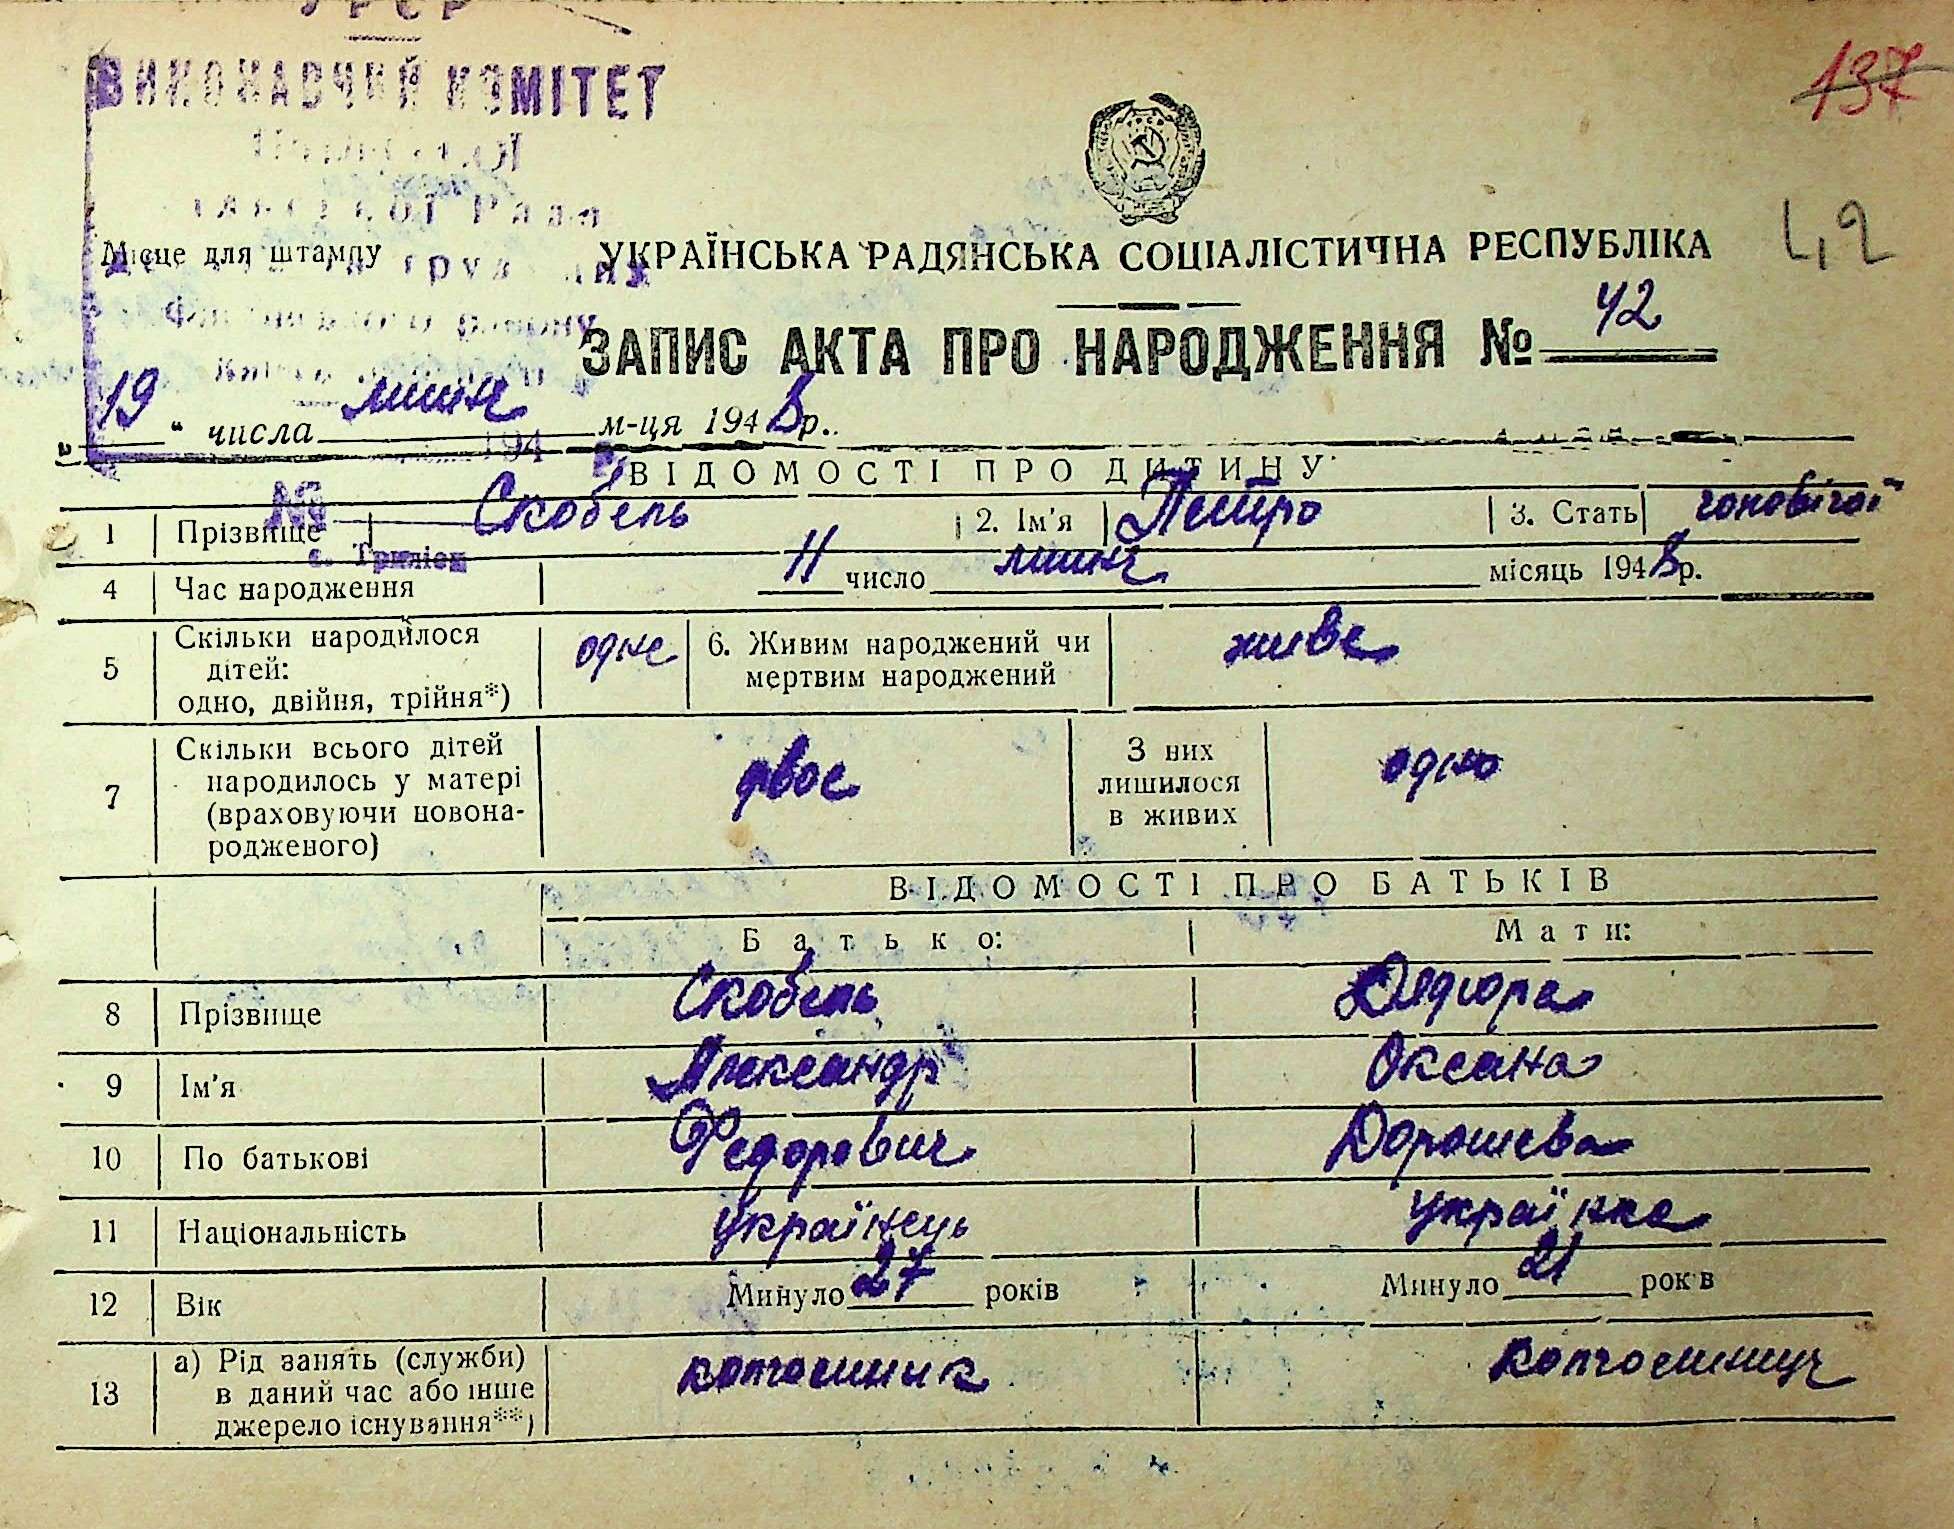 УРСР
ВИКОНАВЧИЙ КОМІТЕТ
137
42
Місце для штампу
УКРАЇНСЬКА РАДЯНСЬКА СОЦІАЛІСТИЧНА РЕСПУБЛІКА
ЗАПИС АКТА ПРО НАРОДЖЕННЯ № 42
„ 19 “ числа липня м-ця 1948 р.
194
ВІДОМОСТІ ПРО ДИТИНУ
№
1 Прізвище Скобель 2. Ім'я Петро 3. Стать чоловічої
с. Триліси
4 Час народження 11 число липня місяць 1948 р.
5 Скільки народилося дітей: одно, двійня, трійня*) одне 6. Живим народжений чи мертвим народжений живе
7 Скільки всього дітей народилось у матері (враховуючи новонародженого) двое З них лишилося в живих одно
ВІДОМОСТІ ПРО БАТЬКІВ
Батько: Мати:
8 Прізвище Скобель Дядюра
9 Ім'я Александр Оксана
10 По батькові Федорович Дорошева
11 Національність українець українка
12 Вік Минуло 27 років Минуло 21 років
13 а) Рід занять (служби) в даний час або інше джерело існування**) колгоспнык колгоспниця